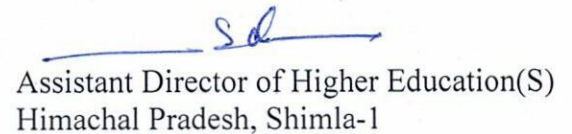 Sd
Assistant Director of Higher Education(S)
Himachal Pradesh, Shimla-1